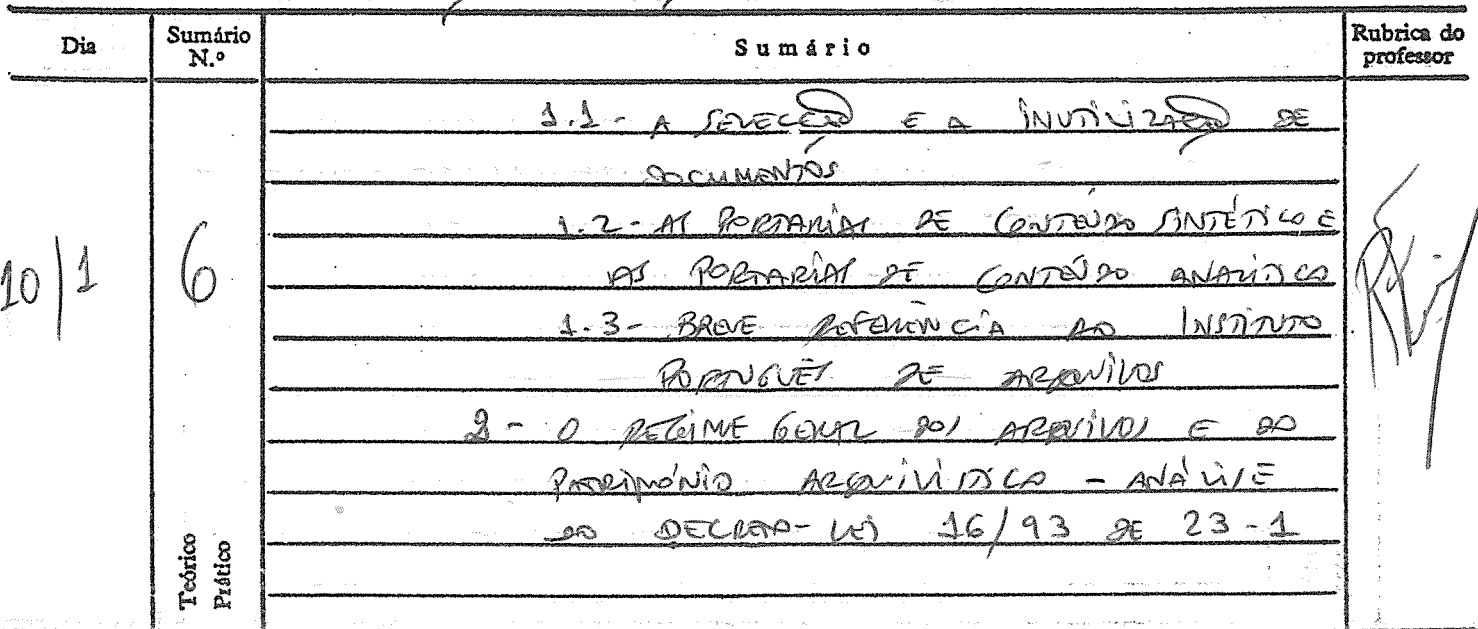 Dia
Sumário N.º
Sumário
Rubrica do professor
1.1 - A SELECÇÃO E A INUTILIZAÇÃO DE
DOCUMENTOS
1.2 - AS PORTARIAS DE CONTEÚDO SINTÉTICO E
AS PORTARIAS DE CONTEÚDO ANALÍTICO
10/1
6
1.3 - BREVE REFERÊNCIA AO INSTITUTO
PORTUGUÊS DE ARQUIVOS
2 - O REGIME GERAL DOS ARQUIVOS E DO
PATRIMÓNIO ARQUIVÍSTICO - ANÁLISE
DO DECRETO-LEI 16/93 DE 23-1
Teórico
Prático